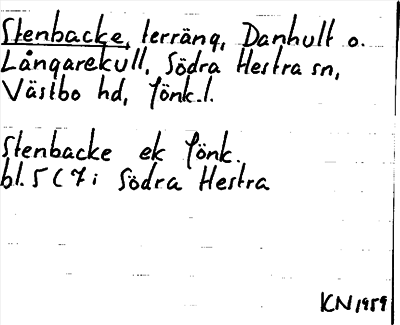 Stenbacke, terräng, Danhult o.
Långarekull, Södra Hestra sn,
Västbo hd, Jönk.l.
Stenbacke ek Jönk.
bl. 5 C 7 i Södra Hestra
KN 1959